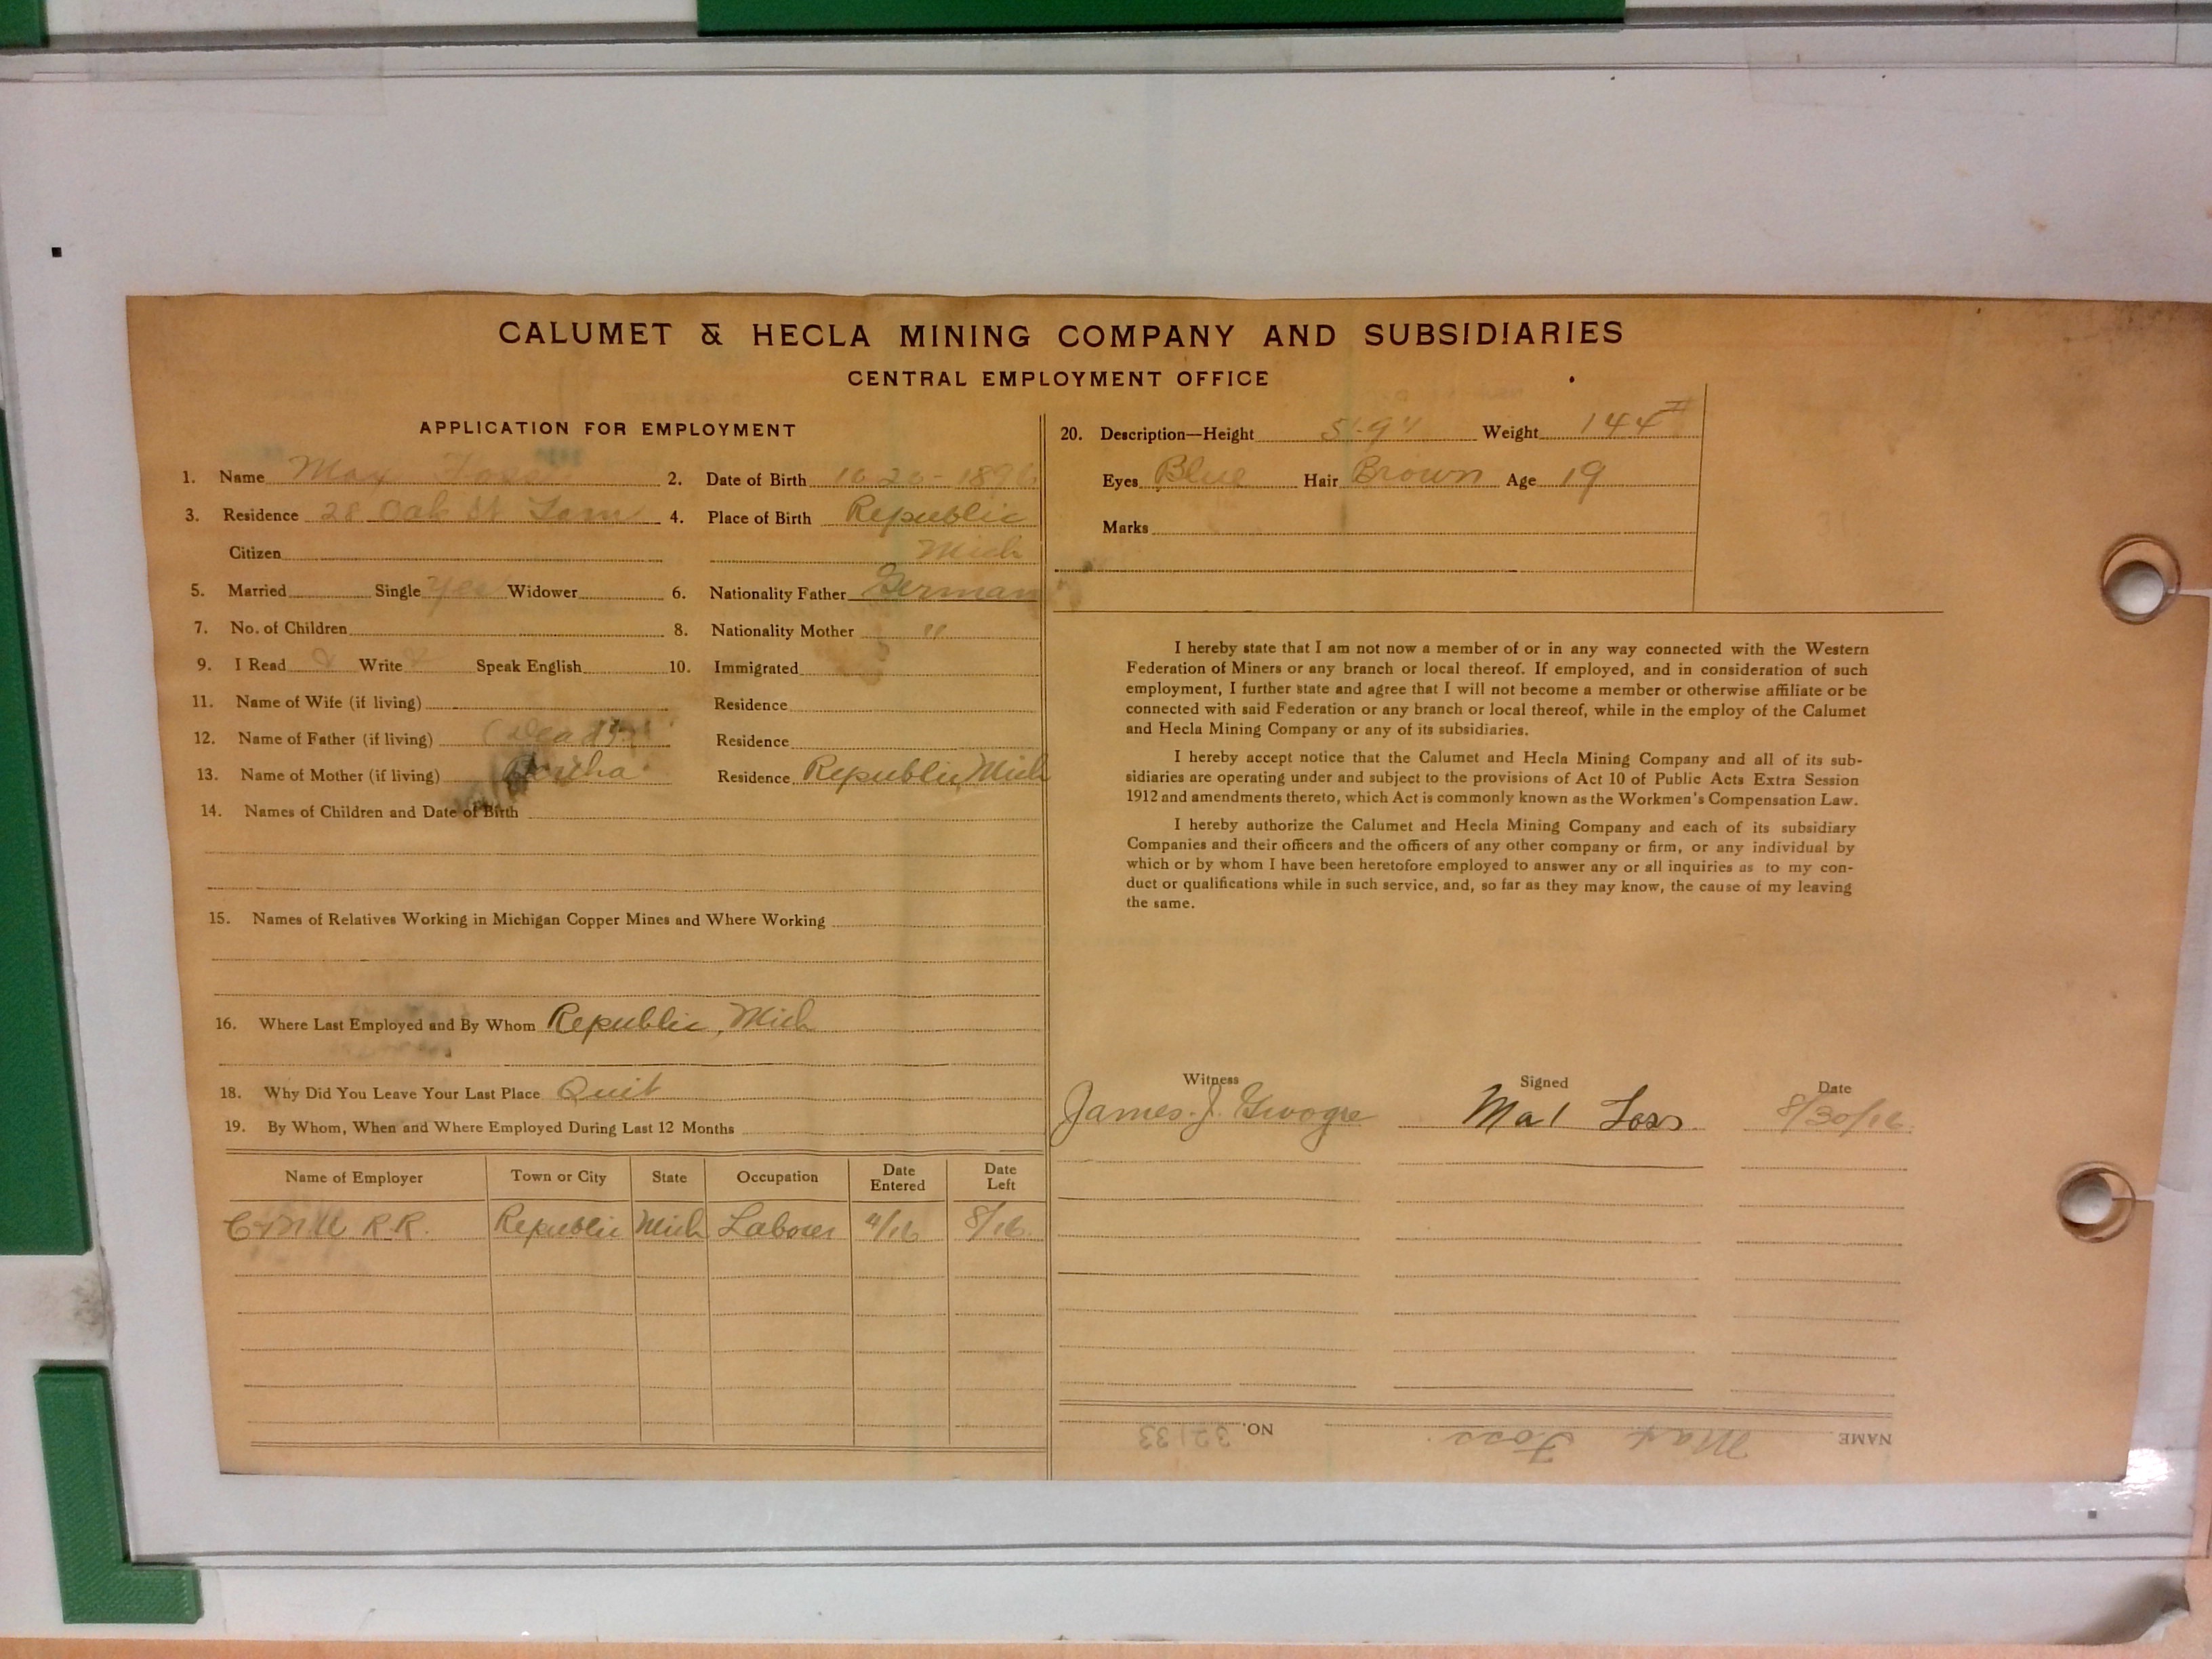 CALUMET & HECLA MINING COMPANY AND SUBSIDIARIES
CENTRAL EMPLOYMENT OFFICE
APPLICATION FOR EMPLOYMENT
1. Name Max Foss 2. Date of Birth
3. Residence 28 Oak St 4. Place of Birth Republic
Citizen Mich
5. Married Single Yes Widower 6. Nationality Father German
7. No. of Children 8. Nationality Mother "
9. I Read Write Speak English 10. Immigrated
11. Name of Wife (if living) Residence
12. Name of Father (if living) (Dead) Residence
13. Name of Mother (if living) Residence Republic, Mich
14. Names of Children and Date of Birth
15. Names of Relatives Working in Michigan Copper Mines and Where Working
16. Where Last Employed and By Whom Republic, Mich
18. Why Did You Leave Your Last Place Quit
19. By Whom, When and Where Employed During Last 12 Months
Name of Employer Town or City State Occupation Date Entered Date Left
R.R. Republic Mich Laborer 4/16 8/16
20. Description—Height 5'-9" Weight 144
Eyes Blue Hair Brown Age 19
Marks
I hereby state that I am not now a member of or in any way connected with the Western
Federation of Miners or any branch or local thereof. If employed, and in consideration of such
employment, I further state and agree that I will not become a member or otherwise affiliate or be
connected with said Federation or any branch or local thereof, while in the employ of the Calumet
and Hecla Mining Company or any of its subsidiaries.
I hereby accept notice that the Calumet and Hecla Mining Company and all of its sub-
sidiaries are operating under and subject to the provisions of Act 10 of Public Acts Extra Session
1912 and amendments thereto, which Act is commonly known as the Workmen's Compensation Law.
I hereby authorize the Calumet and Hecla Mining Company and each of its subsidiary
Companies and their officers and the officers of any other company or firm, or any individual by
which or by whom I have been heretofore employed to answer any or all inquiries as to my con-
duct or qualifications while in such service, and, so far as they may know, the cause of my leaving
the same.
Witness Signed Date
James. J. Max Foss 8/30/16
NAME Max Foss NO. 32133